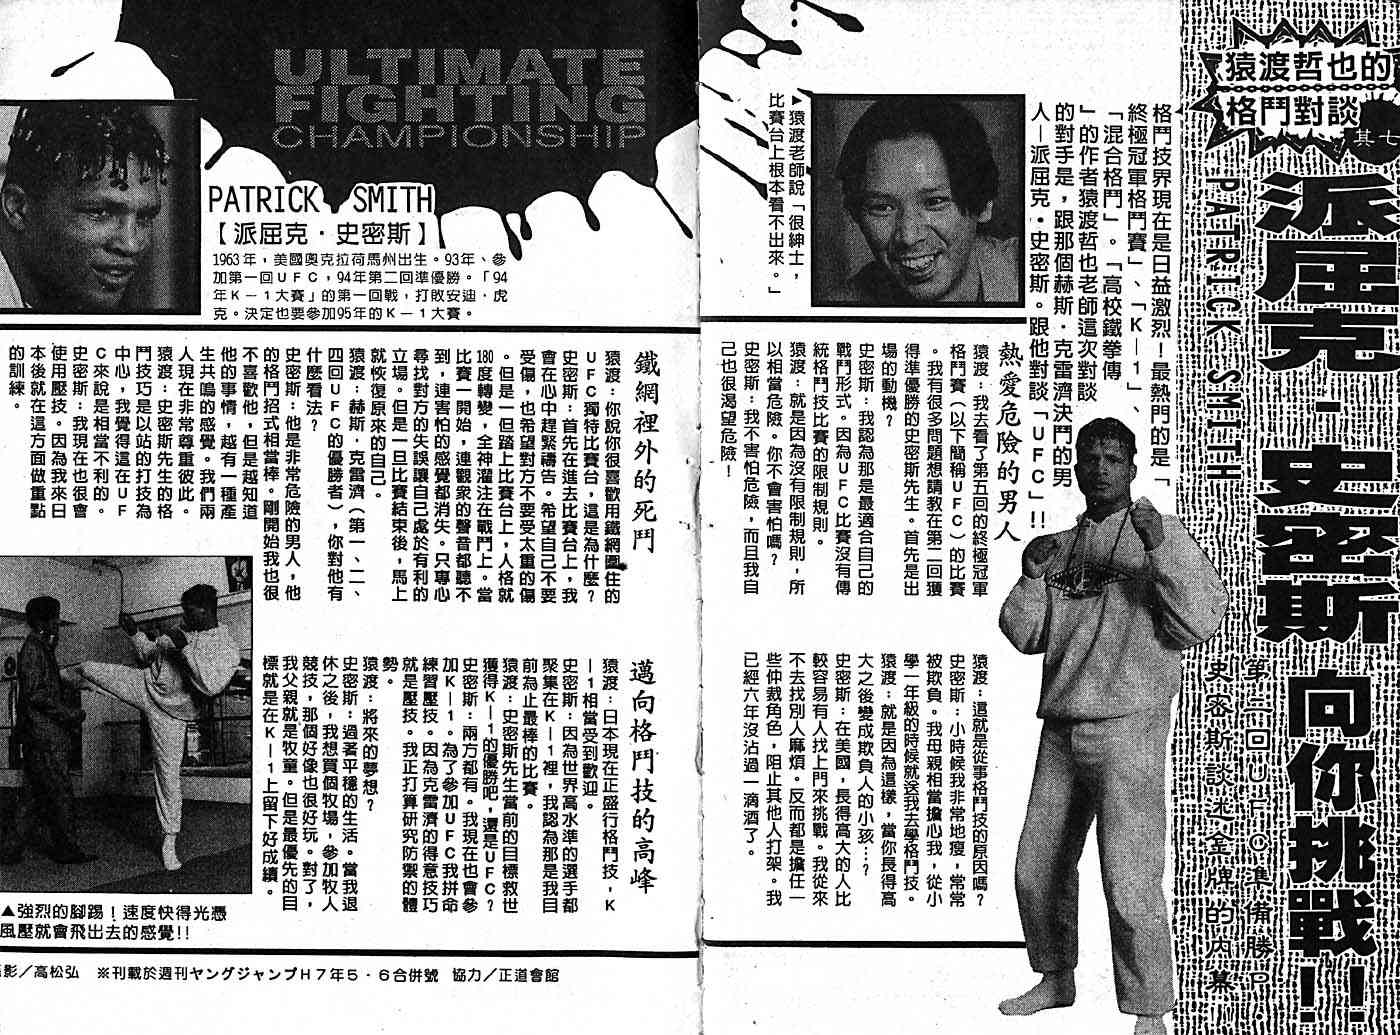 猿渡哲也的
格鬥對談
其七
派屈克·史密斯 向你挑戰!!
PATRICK SMITH
第二回UFC準備勝P.
史密斯談述金牌的內幕
格鬥技界現在是日益激烈!最熱門的是「
終極冠軍格鬥賽」、「K—1」、
「混合格鬥」。「高校鐵拳傳
」的作者猿渡哲也老師這次對談
的對手是,跟那個赫斯·克雷濟決鬥的男
人—派屈克·史密斯。跟他對談「UFC」!!
▶猿渡老師說「很紳士,
比賽台上根本看不出來。」
熱愛危險的男人
猿渡:我去看了第五回的終極冠軍
格鬥賽(以下簡稱UFC)的比賽
。我有很多問題想請教在第二回獲
得準優勝的史密斯先生。首先是出
場的動機?
史密斯:我認為那是最適合自己的
戰鬥形式。因為UFC比賽沒有傳
統格鬥技比賽的限制規則。
猿渡:就是因為沒有限制規則,所
以相當危險。你不會害怕嗎?
史密斯:我不害怕危險,而且我自
己也很渴望危險!
猿渡:這就是從事格鬥技的原因嗎?
史密斯:小時候我非常地瘦,常常
被欺負。我母親相當擔心我,從小
學一年級的時候就送我去學格鬥技。
猿渡:就是因為這樣,當你長得高
大之後變成欺負人的小孩…?
史密斯:在美國,長得高大的人比
較容易有人找上門來挑戰。我從來
不去找別人麻煩。反而都是擔任一
些仲裁角色,阻止其他人打架。我
已經六年沒沾過一滴酒了。
ULTIMATE
FIGHTING
CHAMPIONSHIP
PATRICK SMITH
【派屈克·史密斯】
1963年,美國奧克拉荷馬州出生。93年、參
加第一回UFC,94年第二回準優勝。「94
年K—1大賽」的第一回戰,打敗安迪·虎
克。決定也要參加95年的K—1大賽。
鐵網裡外的死鬥
猿渡:你說你很喜歡用鐵網圍住的
UFC獨特比賽台,這是為什麼?
史密斯:首先在進去比賽台上,我
會在心中趕緊禱告。希望自己不要
受傷,也希望對方不要受太重的傷
。但是一但踏上比賽台上,人格就
180度轉變,全神灌注在戰鬥上。當
比賽一開始,連觀眾的聲音都聽不
到,連害怕的感覺都消失。只專心
尋找對方的失誤讓自己處於有利的
立場。但是一旦比賽結束後,馬上
就恢復原來的自己。
猿渡:赫斯·克雷濟(第一、二、
四回UFC的優勝者),你對他有
什麼看法?
史密斯:他是非常危險的男人,他
的格鬥招式相當棒。剛開始我也很
不喜歡他,但是越知道
他的事情,越有一種產
生共鳴的感覺。我們兩
人現在非常尊重彼此。
猿渡:史密斯先生的格
鬥技巧是以站的打技為
中心,我覺得這在UF
C來說是相當不利的。
史密斯:我現在也很會
使用壓技。因為我來日
本後就在這方面做重點
的訓練。
邁向格鬥技的高峰
猿渡:日本現在正盛行格鬥技,K
—1相當受到歡迎。
史密斯:因為世界高水準的選手都
聚集在K—1裡,我認為那是我目
前為止最棒的比賽。
猿渡:史密斯先生當前的目標救世
獲得K—1的優勝吧,還是UFC?
史密斯:兩方都有。我現在也會參
加K—1。為了參加UFC我拼命
練習壓技。因為克雷濟的得意技巧
就是壓技。我正打算研究防禦的體
勢。
猿渡:將來的夢想?
史密斯:過著平穩的生活。當我退
休之後,我想買個牧場,參加牧人
競技,那個好像也很好玩。對了,
我父親就是牧童。但是最優先的目
標就是在K—1上留下好成績。
▲強烈的腳踢!速度快得光憑
風壓就會飛出去的感覺!!
影/高松弘 ※刊載於週刊ヤングジャンプH7年5·6合併號 協力/正道會館